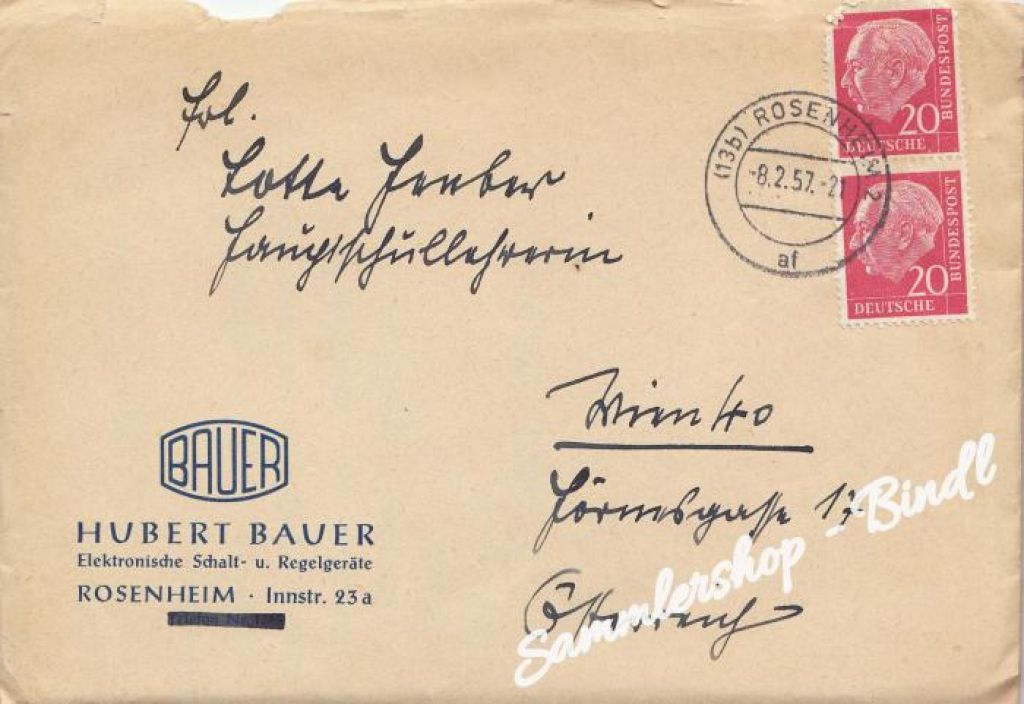 Frl.
Lotte
Hauptschullehrerin
Wien 40
Österreich
BAUER
HUBERT BAUER
Elektronische Schalt- u. Regelgeräte
ROSENHEIM · Innstr. 23a
(13b) ROSENHEIM 2
-8.2.57.-21
af
20
DEUTSCHE
BUNDESPOST
20
DEUTSCHE
BUNDESPOST
Sammlershop - Bindl